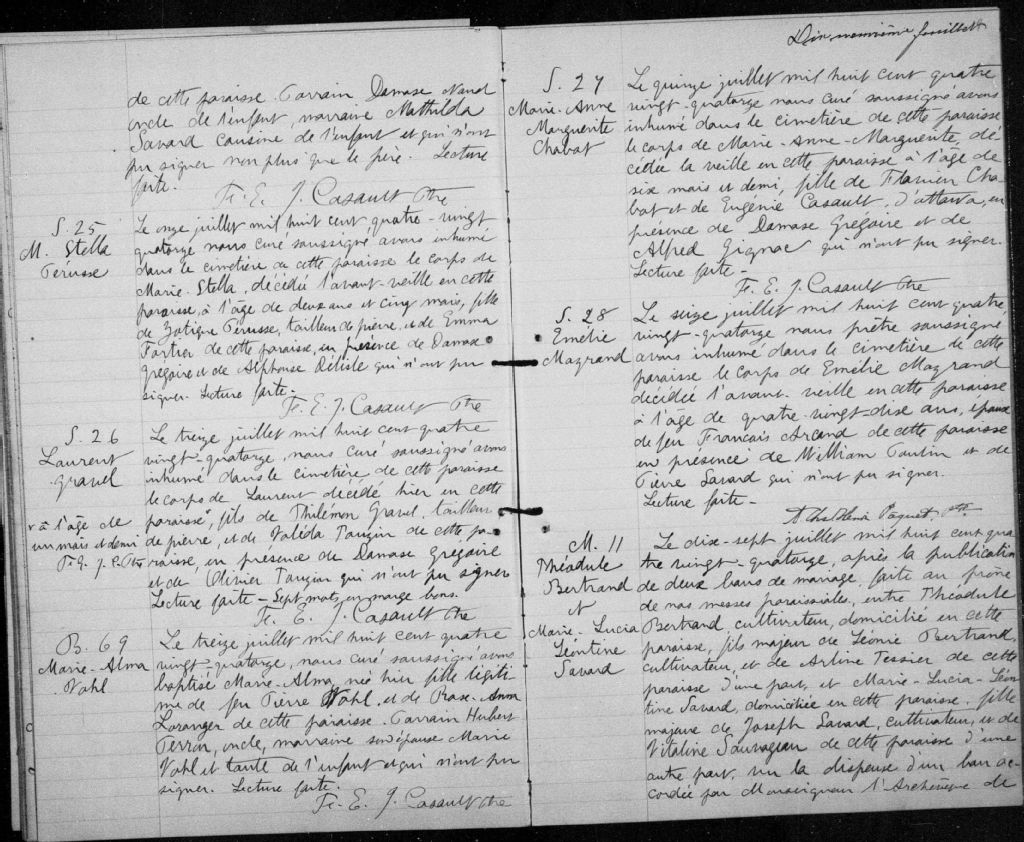 de cette paroisse. Parrain Damase Naud
oncle de l'enfant, marraine Mathilda
Savard cousine de l'enfant et qui n'ont
pu signer non plus que le père. Lecture
faite.
Fr. E. J. Casault Ptre
S. 25
M. Stella
Perusse
Le onze juillet mil huit cent quatre-vingt
quatorze nous curé soussigné avons inhumé
dans le cimetière de cette paroisse le corps de
Marie-Stella, décédée l'avant-veille en cette
paroisse, à l'âge de deux ans et cinq mois, fille
de Zotique Perusse, tailleur de pierre, et de Emma
Fortier de cette paroisse, en présence de Damase
Gregoire et de Alphonse Delisle qui n'ont pu
signer. Lecture faite.
Fr. E. J. Casault Ptre
S. 26
Laurent
Gravel
Le treize juillet mil huit cent quatre
vingt-quatorze, nous curé soussigné avons
inhumé dans le cimetière de cette paroisse
le corps de Laurent décédé hier en cette
paroisse, fils de Philémon Gravel, tailleur
de pierre, et de Valéda Paugin de cette pa-
roisse, en présence de Damase Gregoire
et de Olivier Paugin qui n'ont pu signer
Lecture faite - Sept mots en marge bons.
Fr. E. J. Casault Ptre
à l'âge de
un mois et demi
F. E. J. C. Ptre
B. 69
Marie-Alma
Vohl
Le treize juillet mil huit cent quatre
vingt-quatorze, nous curé soussigné avons
baptisé Marie-Alma, née hier fille légiti
me de feu Pierre Vohl, et de Rose-Anna
Loranger de cette paroisse. Parrain Hubert
Perron, oncle, marraine son épouse Marie
Vohl et tante de l'enfant et qui n'ont pu
signer. Lecture faite.
Fr. E. J. Casault Ptre
Dix neuvième feuillet
S. 27
Marie-Anne
Marguerite
Chabot
Le quinze juillet mil huit cent quatre
vingt-quatorze nous curé soussigné avons
inhumé dans le cimetière de cette paroisse
le corps de Marie-Anne-Marguerite, dé
cédée la veille en cette paroisse à l'âge de
six mois et demi, fille de Flavien Cha
bot et de Eugénie Casault, d'Ottawa, en
présence de Damase Gregoire et de
Alfred Gignac qui n'ont pu signer.
Lecture faite -
Fr. E. J. Casault Ptre
S. 28
Emélie
Magrand
Le seize juillet mil huit cent quatre
vingt-quatorze nous prêtre soussigné
avons inhumé dans le cimetière de cette
paroisse le corps de Emélie Magrand
décédée l'avant-veille en cette paroisse
à l'âge de quatre-vingt-dix ans, épouse
de feu Francois Arcand de cette paroisse
en présence de William Poulin et de
Pierre Savard qui n'ont pu signer.
Lecture faite -
Paquet, Ptre
M. 11
Théodule
Bertrand
et
Marie-Lucia
Léontine
Savard
Le dix-sept juillet mil huit cent qua
tre vingt-quatorze, après la publication
de deux bans de mariage, faite au prône
de nos messes paroissiales, entre Théodule
Bertrand, cultivateur, domicilié en cette
paroisse, fils majeur de Léonie Bertrand,
cultivateur, et de Arline Tessier de cette
paroisse d'une part, et Marie-Lucia-Léon
tine Savard, domiciliée en cette paroisse, fille
majeure de Joseph Savard, cultivateur, et de
Vitaline Sauvageau de cette paroisse d'une
autre part, vu la dispense d'un ban ac-
cordée par Monseigneur l'Archevêque de